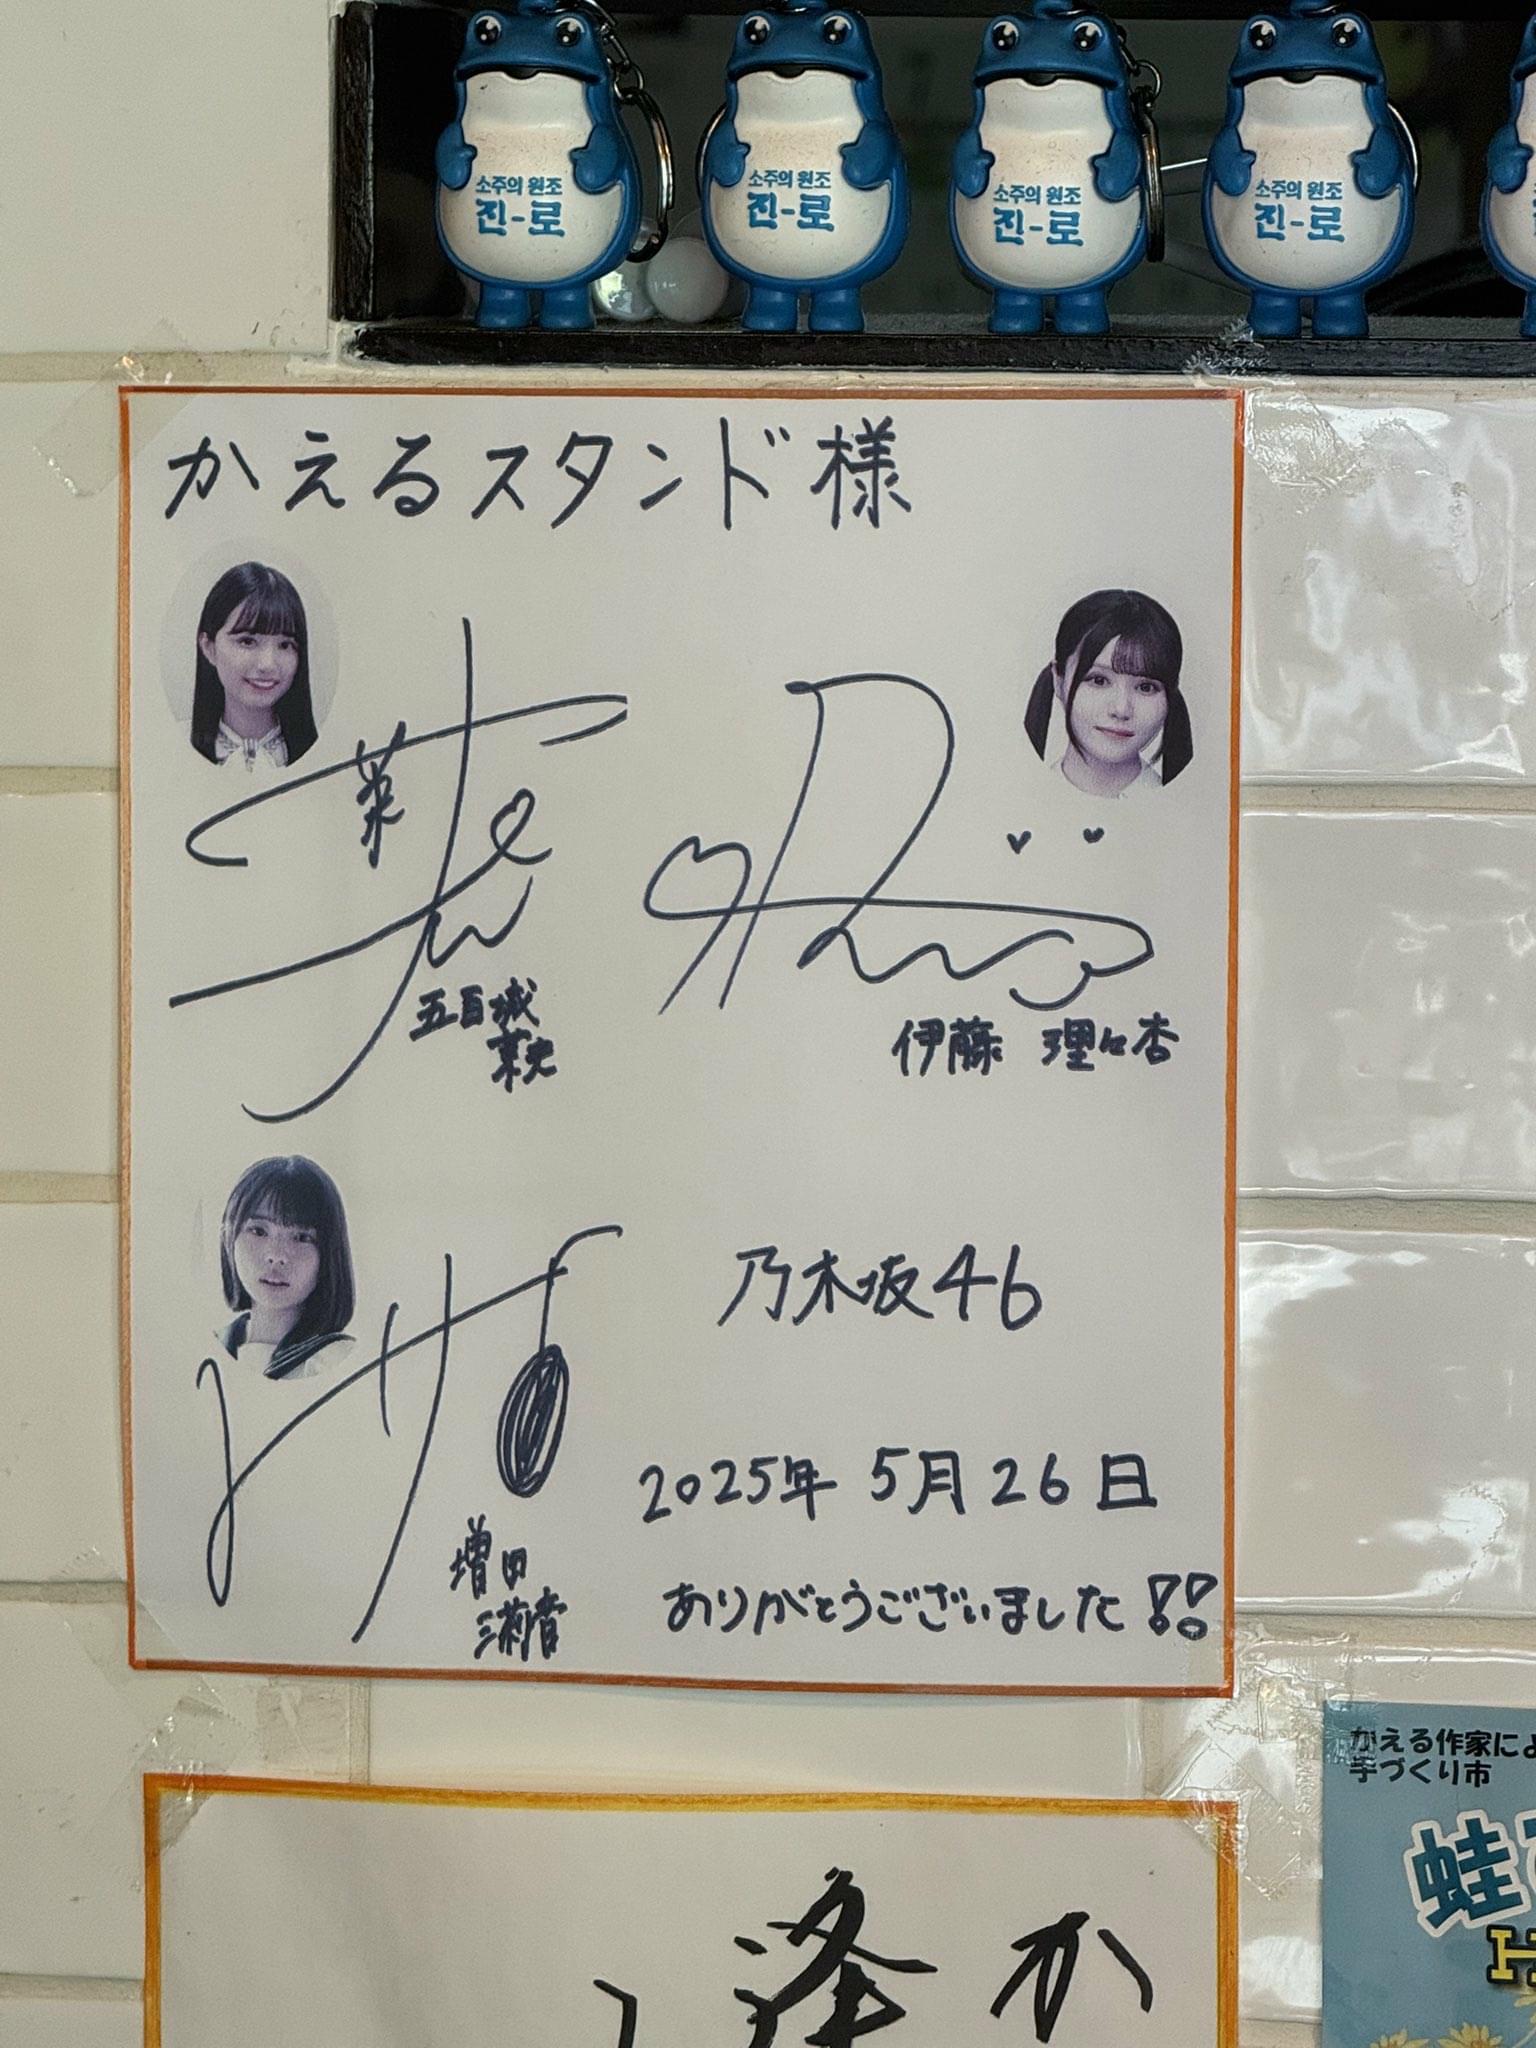 소주의 원조
진-로
소주의 원조
진-로
소주의 원조
진-로
소주의 원조
진-로
かえるスタンド様
五百城
茉央
伊藤 理々杏
増田
三莉音
乃木坂46
2025年 5月 26日
ありがとうございました!!
かえる作家によ
手づくり市
蛙
H
逢 か